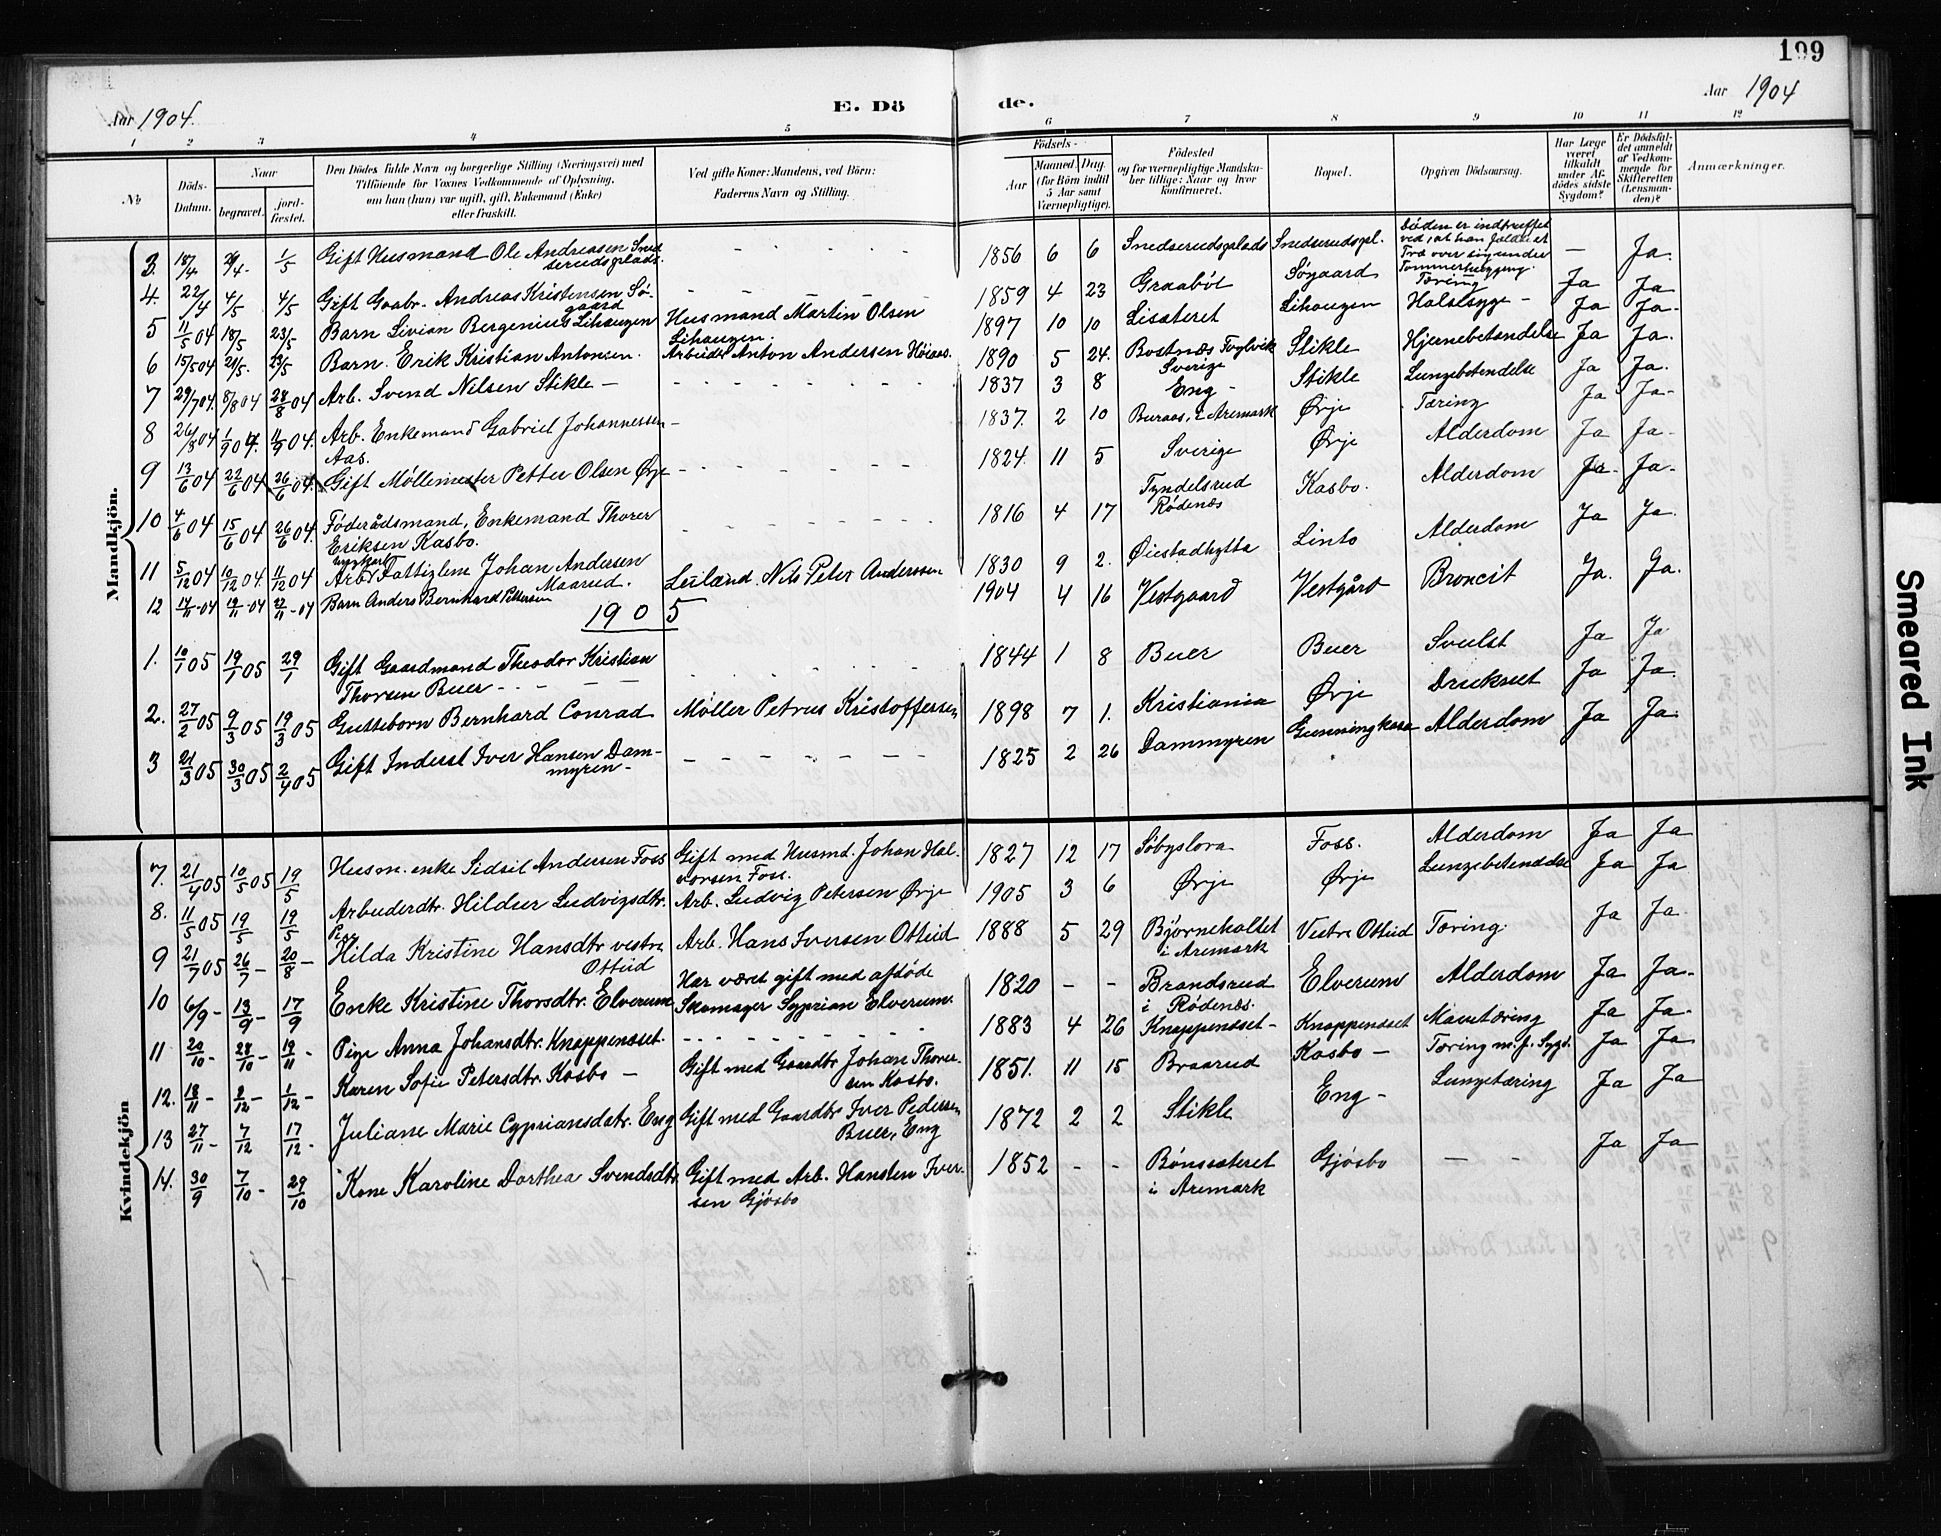 199
Aar 1904.
E. Dö de.
Aar 1904
1 2 3 4 5 6 7 8 9 10 11 12
No
Döds-Datum.
Naar
begravet.
jord-fæstet.
Den Dödes fulde Navn og borgerlige Stilling (Næringsvei) med
Tilföiende for Voxnes Vedkommende af Oplysning,
om han (hun) var ugift, gift, Enkemand (Enke)
eller fraskilt.
Ved gifte Koner: Mandens, ved Börn:
Faderens Navn og Stilling.
Födsels-
Aar
Maaned. Dag.
(for Börn indtil 5 Aar samt Værnepligtige).
Födested
og for værnepligtige Mandskaber tillige: Naar og hvor konfirmeret.
Bopæl.
Opgiven Dödsaarsag.
Har Læge været tilkaldt under Afdödes sidste Sygdom?
Er Dödsfaldet anmeldt af Vedkommende for Skifteretten (Lensmanden)?
Anmærkninger.
Mandkjön.
3. 18/4 29/4 1/5 Gift Husmand Ole Andreasen Snedserudsplads. 1856 6 6 Snedserudsplads Snedserudspl. Döden er indtruffet ved, at han fældet et Træ over sig under Tømmerhugging. — Ja.
4. 22/4 4/5 4/5 Gift Gaabr. Andreas Kristensen Søgaard 1859 4 23 Graabøl Søgaard Tæring Ja Ja
5 11/5 04 18/5 23/5 Barn Livian Bergenius Lihaugen Husmand Martin Olsen Lihaugen. 1897 10 10 Lisæteret Lihaugen Halssyge Ja Ja
6 15/5 04 21/5 23/5 Barn. Erik Kristian Antonsen. Arbeider Anton Andersen 1890 5 24. Sverige Stikle Hjernebetændelse Ja Ja.
7 29/7 04. 8/8 04 28/8 04 Arb. Svend Nilsen Stikle 1837 3 8 Eng Stikle Lungebetændelse Ja Ja.
8 26/8 04 1/9 04. 11/9 04. Arb. Enkemand Gabriel Johannessen Aas. 1837. 2 10 Buraas, i Aremark Ørje Tæring Ja Ja
9 13/6 04 22/6 04 26/6 04. Gift Møllemester Petter Olsen Ørje 1824. 11 5 Sverige Ørje Alderdom Ja Ja
10 4/6 04 15/6 04 26/6 04. Føderådsmand, Enkemand Thorer Eriksen Kasbo. 1816 4 17 Tyndelsrud Rødenæs Kasbo. Alderdom Ja Ja
11 5/12 04 10/12 04. 11/12 04 Arb. Fattiglem Johan Andersen Maarud. 1830 9 2. Øiestadhytta Linto Alderdom Ja Ja.
12 14/11 04 19/11 04 04 Barn Anders Bernhard Pettersen Leilænd. Nils Peter Anderssen 1904 4 16 Vestgaard Vestgård Broncit Ja. Ja.
1905
1. 10/1 05 19/1 05 29/1 Gift Gaardmand Theodor Kristian Thorsen Buer 1844 1 8 Buer Buer Svulst Ja Ja
2. 27/2 05 9/3 05 19/3 05 Gutteborn Bernhard Conrad Møller Petrus Kristoffersen 1898 7 1. Kristiania Ørje Druknet Ja Ja.
3 21/3 05 30/3 05 2/4 05 Gift Inderst Iver Hansen Dammyren 1825 2 26 Dammyren Alderdom Ja Ja
Kvindekjön
7. 21/4 05 10/5 05 19/5 Husm. enke Sidsil Andersen Foss Gift med Husmd. Johan Halvorsen Foss. 1827 12 17 Foss. Alderdom Ja Ja
8. 11/5 05 19/5 19/5 Arbeiderdtr. Hildur Ludvigsdtr. Arb. Ludvig Petersen Ørje 1905 3 6 Ørje Ørje Lungebetændelse Ja Ja
9 21/7 05 26/7 20/8 Pige Hilda Kristine Hansdtr vestre Otteid Arb. Hans Iversen Otteid 1888 5 29 Bjørneholtet i Aremark Vestre Otteid Tæring. Ja Ja.
10 6/9 13/9 17/9 Enke Kristine Thorsdtr. Elverum Har været gift med afdøde Skomager Syprian Elverum. 1820 - - Brandsrud i Rødenæs. Elverum Alderdom Ja Ja
11 20/10 28/10 19/11 Pige Anna Johansdtr. Knappenæset. 1883 4 26 Knappenæset Knappenæset Mavetæring Ja Ja
12. 18/11 1/12 Karen Sofie Petersdtr. Kasbo Gift med Gaardbr Johan Thorersen Kasbo. 1851. 11 15 Braarud Kasbo Tæring m. fl. Sygd. Ja Ja
13 27/11 7/12 17/12 Juliane Marie Cypriansdatr. Eng Gift med Gaardbr Iver Pedersen Buer, Eng 1872 2 2 Stikle Eng Lungetæring Ja Ja
14. 30/9 7/10 29/10 Kone Karoline Dorthea Svendsdtr Gift med Arb. Hansten Iversen Gjøsbo 1852 - - Bønsæteret i Aremark Gjøsbo — - Ja Ja
Smeared Ink